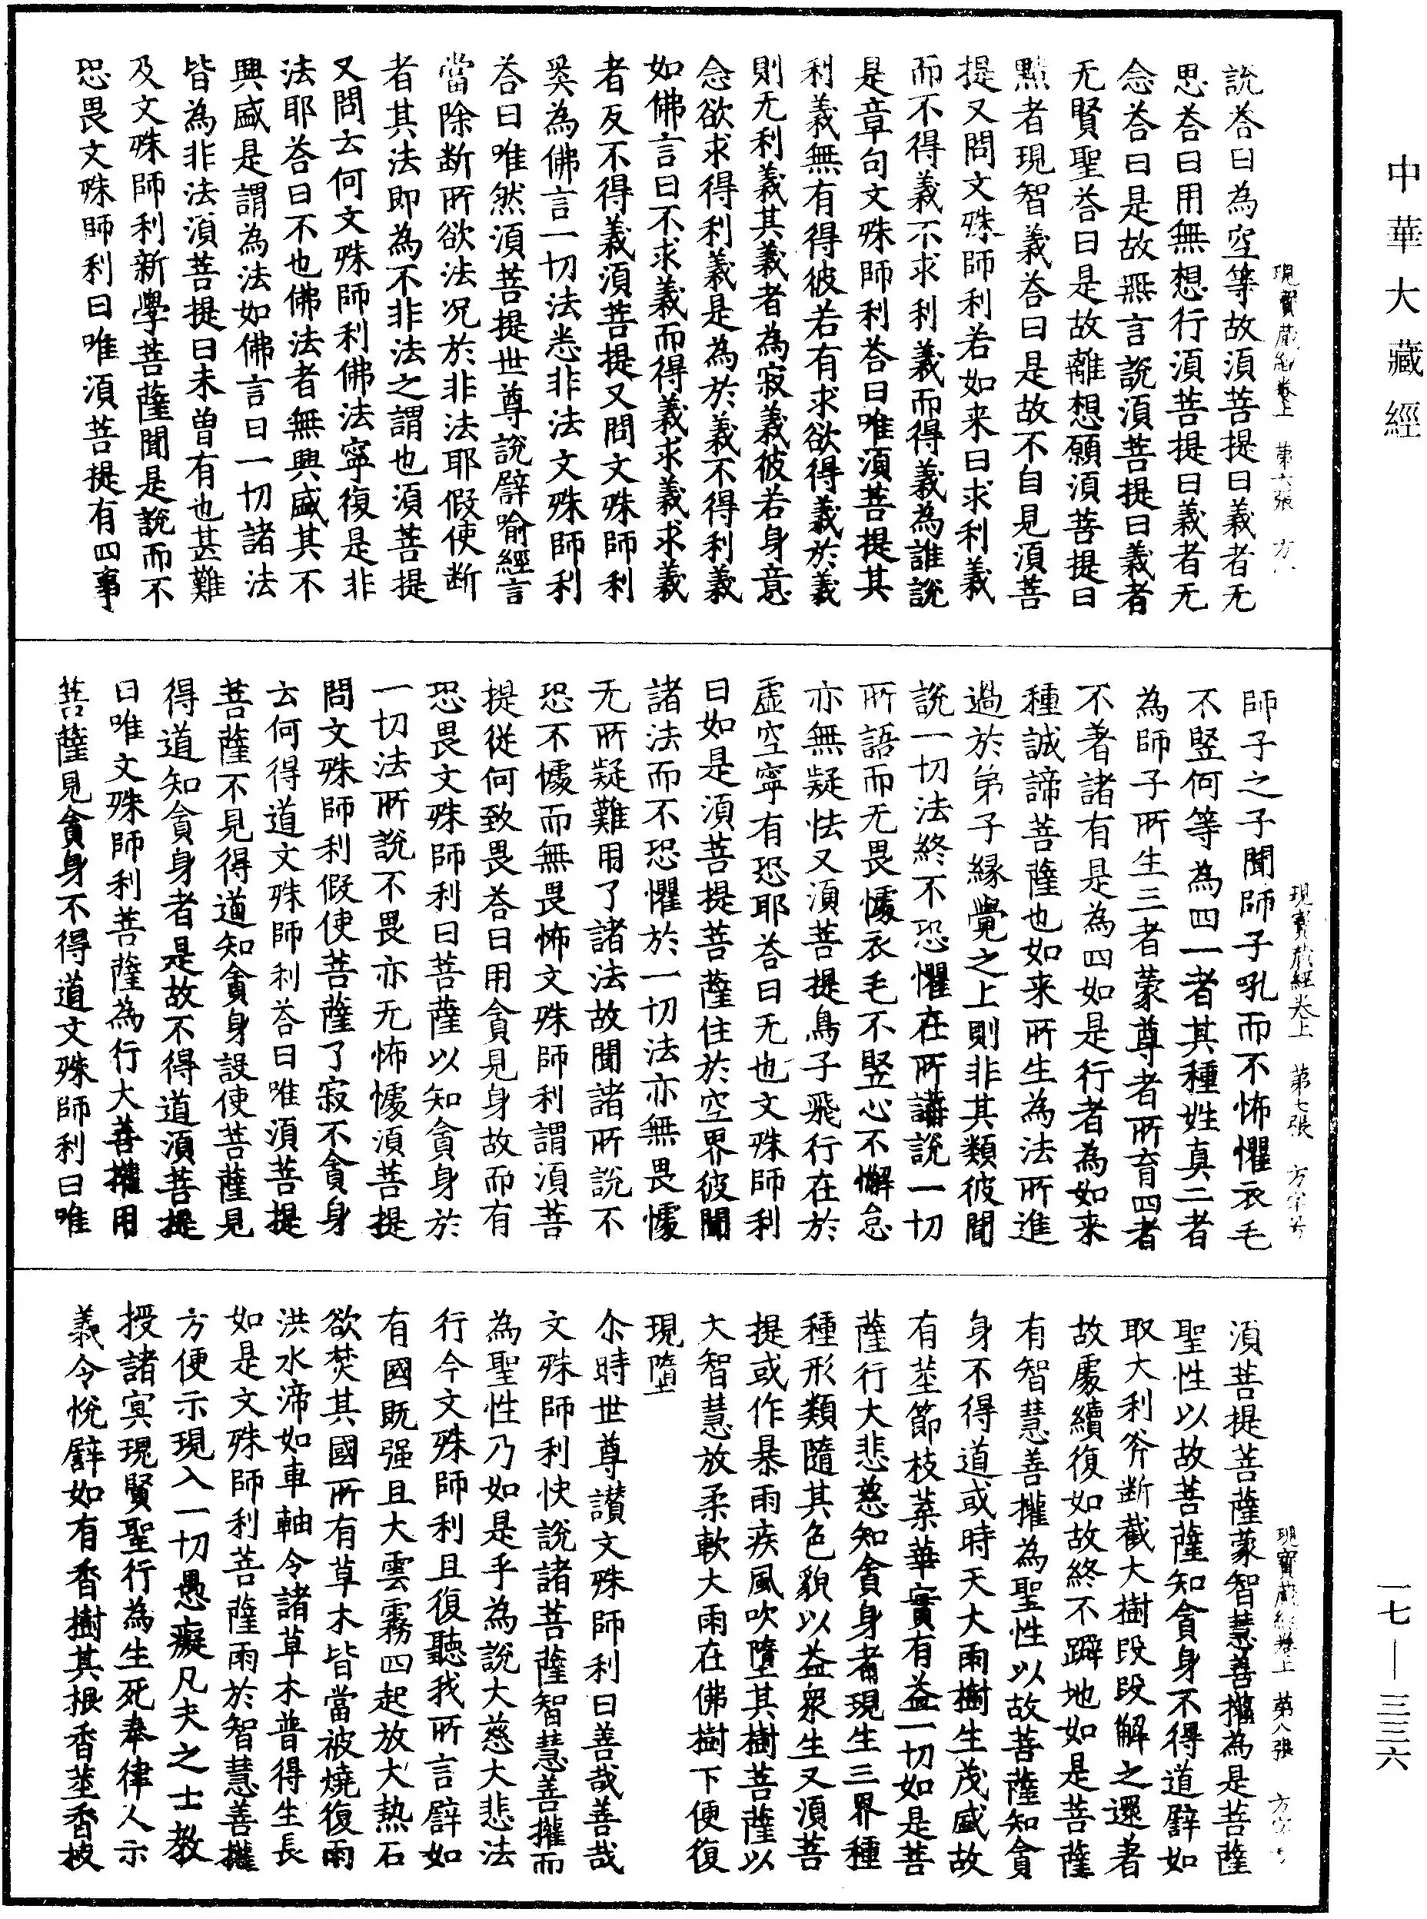 中華大藏經
一七—三三六
現寶藏經卷上　第六張　方
說荅曰為空等故湏菩提曰義者无
思荅曰用無想行湏菩提曰義者无
念荅曰是故無言說湏菩提曰義者
无賢聖荅曰是故離想願湏菩提曰
黠者現智義荅曰是故不自見湏菩
提又問文殊師利若如来曰求利義
而不得義不求利義而得義為誰說
是章句文殊師利荅曰唯湏菩提其
利義無有得彼若有求欲得義於義
則无利義其義者為寂義彼若身意
念欲求得利義是為於義不得利義
如佛言曰不求義而得義求義求義
者反不得義湏菩提又問文殊師利
奚為佛言一切法悉非法文殊師利
荅曰唯然湏菩提世尊說譬喻經言
當除断所欲法况於非法耶假使断
者其法即為不非法之謂也湏菩提
又問云何文殊師利佛法寧復是非
法耶荅曰不也佛法者無興盛其不
興盛是謂為法如佛言曰一切諸法
皆為非法湏菩提曰未曾有也甚難
及文殊師利新學菩薩聞是說而不
恐畏文殊師利曰唯湏菩提有四事
現寶藏經卷上　第七張　方字号
師子之子聞師子吼而不怖懼衣毛
不竪何等為四一者其種姓真二者
為師子所生三者蒙尊者所育四者
不著諸有是為四如是行者為如来
種誠諦菩薩也如来所生為法所進
過於弟子緣覺之上則非其類彼聞
說一切法終不恐懼在所講說一切
所語而无畏懅衣毛不竪心不懈怠
亦無疑怯又湏菩提鳥子飛行在於
虛空寧有恐耶荅曰无也文殊師利
曰如是湏菩提菩薩住於空界彼聞
諸法而不恐懼於一切法亦無畏懅
无所疑難用了諸法故聞諸所說不
恐不懅而無畏怖文殊師利謂湏菩
提從何致畏荅曰用貪見身故而有
恐畏文殊師利曰菩薩以知貪身於
一切法所說不畏亦无怖懅湏菩提
問文殊師利假使菩薩了寂不貪身
云何得道文殊師利荅曰唯湏菩提
菩薩不見得道知貪身設使菩薩見
得道知貪身者是故不得道湏菩提
曰唯文殊師利菩薩為行大善權用
菩薩見貪身不得道文殊師利曰唯
現寶藏經卷上　第八張　方字号
湏菩提菩薩蒙智慧善權為是菩薩
聖性以故菩薩知貪身不得道譬如
取大利斧断截大樹段段解之還著
故處續復如故終不躃地如是菩薩
有智慧善權為聖性以故菩薩知貪
身不得道或時天大雨樹生茂盛故
有莖節枝葉華實有益一切如是菩
薩行大悲慈知貪身者現生三界種
種形類隨其色貌以益衆生又湏菩
提或作暴雨疾風吹墮其樹菩薩以
大智慧放柔軟大雨在佛樹下便復
現墮
尒時世尊讃文殊師利曰善哉善哉
文殊師利快說諸菩薩智慧善權而
為聖性乃如是乎為說大慈大悲法
行今文殊師利且復聽我所言譬如
有國既强且大雲霧四起放大熱石
欲焚其國所有草木皆當被燒復雨
洪水渧如車軸令諸草木普得生長
如是文殊師利菩薩雨於智慧善權
方便示現入一切愚癡凡夫之士教
授諸冥現賢聖行為生死奉律人示
義令悅譬如有香樹其根香莖香枝